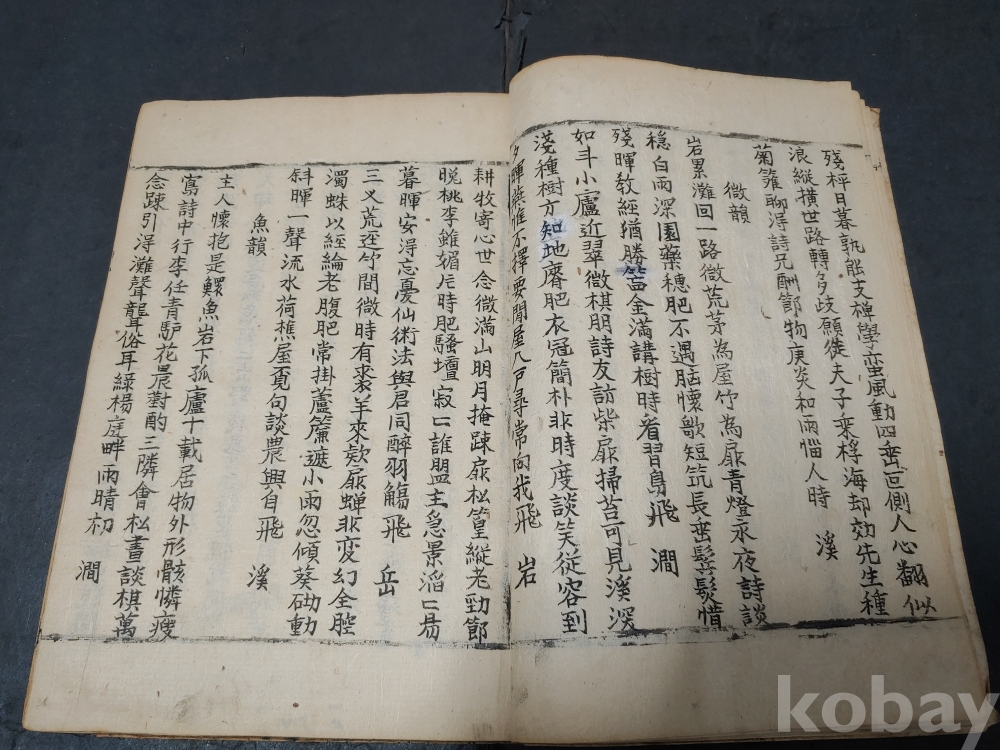 殘枰日暮孰能支禪學蠻風動四垂叵側人心翻似
浪縱橫世路轉多歧願從夫子乘桴海却効先生種
菊籬聊淂詩兄酬節物庚炎和雨惱人時 溪
微韻
岩累灘回一路微荒茅為屋竹為扉青燈永夜詩談
穩白雨深園藥穗肥不遇胸懷歌短筑長垂鬂髮惜
殘暉教經猶勝籯金滿講樹時看習鳥飛 澗
如斗小廬近翠微棋朋詩友訪柴扉掃苔可見溪深
淺種樹方知地瘠肥衣冠簡朴非時度談笑従容到
夕暉無惟不擇要閒屋入戸尋常向我飛 岩
耕牧寄心世念微滿山明月掩踈扉松篁縱老勁節
晩桃李雖媚片時肥騷壇寂匸誰盟主急景滔匸易
暮暉安得忘憂仙術法與君同醉羽觴飛 岳
三叉荒逕竹間微時有裘羊來欵扉蟬非変幻全腔
濁蛛以經綸老腹肥常掛蘆簾遮小雨忽傾葵砌動
斜暉一聲流水荷樵屋覔句談農興自飛 溪
魚韻
主人懷抱是鰥魚岩下孤廬十載居物外形骸憐瘦
寫詩中行李任青馿花晨對酌三隣會松晝談棋萬
念踈引淂灘聲聾俗耳綠楊庭畔雨晴初 澗
kobay